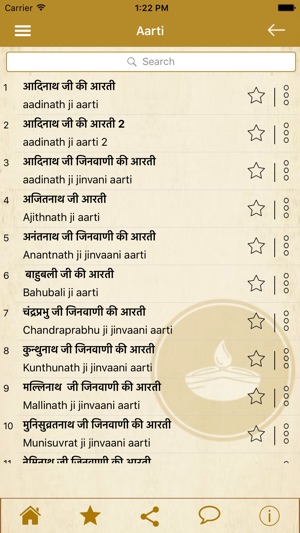 Carrier 1:22 PM
Aarti
Search
1 आदिनाथ जी की आरती
aadinath ji aarti
2 आदिनाथ जी की आरती 2
aadinath ji aarti 2
3 आदिनाथ जी जिनवाणी की आरती
aadinath ji jinvani aarti
4 अजितनाथ जी आरती
Ajithnath ji aarti
5 अनंतनाथ जी जिनवाणी की आरती
Anantnath ji jinvaani aarti
6 बाहुबली जी की आरती
Bahubali ji aarti
7 चंद्रप्रभु जी जिनवाणी की आरती
Chandraprabhu ji jinvaani aarti
8 कुन्थुनाथ जी जिनवाणी की आरती
Kunthunath ji jinvaani aarti
9 मल्लिनाथ जी जिनवाणी की आरती
Mallinath ji jinvaani aarti
10 मुनिसुव्रतनाथ जी जिनवाणी की आरती
Munisuvrat ji jinvaani aarti
11 नेमिनाथ जी जिनवाणी की आरती